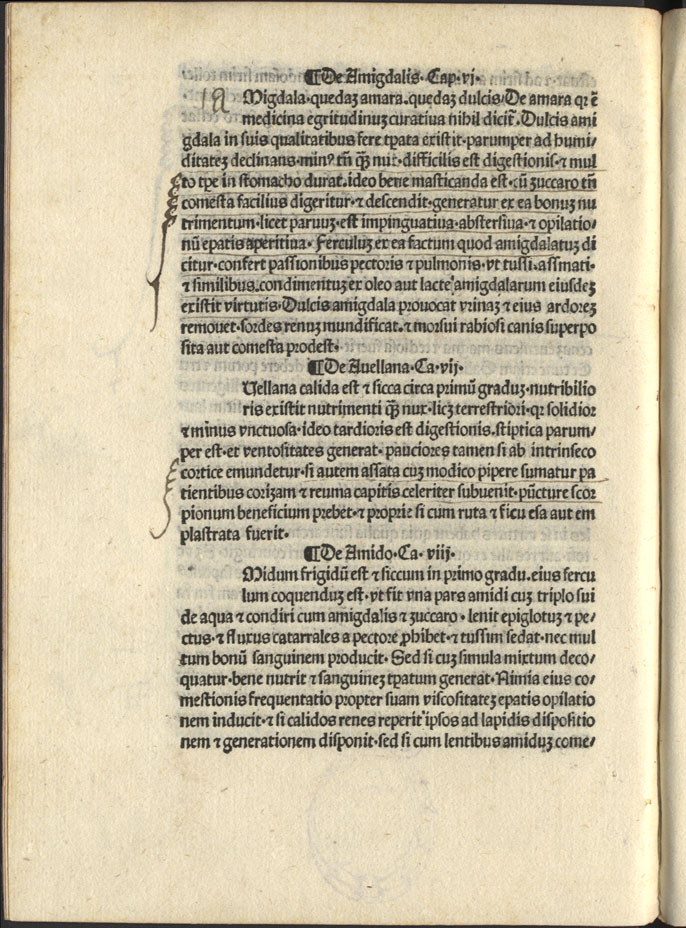 ¶De Amigdalis. Cap. vi.
Migdala. quedaꝫ amara. quedaꝫ dulcis/ De amara qꝛ ē
medicina egritudinuꝫ curatiua nihil dicit̄. Dulcis ami
gdala in suis qualitatibus fere tp̄ata existit. parumper ad humi/
ditateꝫ declinans. minꝰ tn̄ qꝫ̄ nux. difficilis est digestionis. ⁊ mul
to tp̄e in stomacho durat. ideo bene masticanda est. cū zuccaro tn̄
comesta facilius digeritur. ⁊ descendit. generatur ex ea bonuꝫ nu
trimentum. licet paruuꝫ. est impinguatiua. abstersiua. ⁊ opilatio/
nū epatis aperitiua. Ferculuꝫ ex ea factum quod amigdalatuꝫ di
citur. confert passionibus pectoris ⁊ pulmonis. vt tussi. assmati.
⁊ similibus. condimentuꝫ ex oleo aut lacte amigdalarum eiusdeꝫ
existit virtutis. Dulcis amigdala prouocat vrinaꝫ ⁊ eius ardoreꝫ
remouet. sordes renuꝫ mundificat. ⁊ morsui rabiosi canis superpo
sita aut comesta prodest.
¶De Auellana. Ca. vij.
Uellana calida est ⁊ sicca circa primū graduꝫ. nutribilio
ris existit nutrimenti qꝫ̄ nux. licꝫ terrestriori. qꝛ solidior
⁊ minus vnctuosa. ideo tardioris est digestionis. stiptica parum/
per est. et ventositates generat. pauciores tamen si ab intrinseco
cortice emundetur. si autem assata cuꝫ modico pipere sumatur pa
tientibus corizam ⁊ reuma capitis celeriter subuenit. pūcture scor
pionum beneficium prebet. ⁊ proprie si cum ruta ⁊ ficu esa aut em
plastrata fuerit.
¶De Amido. Ca. viij.
Midum frigidū est ⁊ siccum in primo gradu. eius fercu
lum coquenduꝫ est. vt fit vna pars amidi cuꝫ triplo sui
de aqua ⁊ condiri cum amigdalis ⁊ zuccaro. lenit epiglotuꝫ ⁊ pe/
ctus. ⁊ fluxus catarrales a pectore ꝓhibet. ⁊ tussim sedat. nec mul
tum bonū sanguinem producit. Sed si cuꝫ simula mixtum deco/
quatur. bene nutrit ⁊ sanguineꝫ tp̄atum generat. Nimia eius co/
mestionis frequentatio propter suam viscositateꝫ epatis opilatio
nem inducit. ⁊ si calidos renes reperit ipsos ad lapidis dispositio
nem ⁊ generationem disponit. sed si cum lentibus amiduꝫ come/